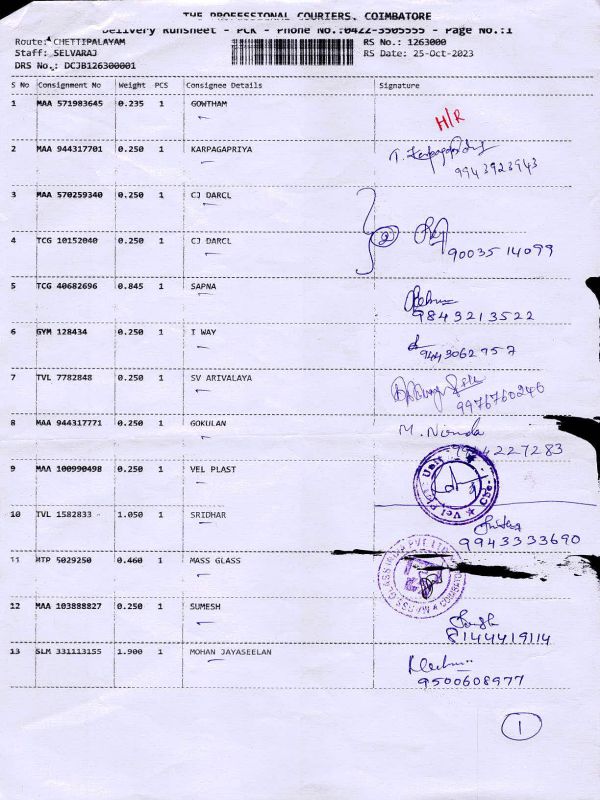 THE PROFESSIONAL COURIERS, COIMBATORE
Delivery Runsheet - PCK - Phone No.:0422-3505555 - Page No.:1
Route: CHETTIPALAYAM RS No.: 1263000
Staff: SELVARAJ RS Date: 25-Oct-2023
DRS No.: DCJB126300001
S No Consignment No Weight PCS Consignee Details Signature
1 MAA 571983645 0.235 1 GOWTHAM H/R
2 MAA 944317701 0.250 1 KARPAGAPRIYA
9943923943
3 MAA 570259340 0.250 1 CJ DARCL
2
4 TCG 10152040 0.250 1 CJ DARCL 9003514099
5 TCG 40682696 0.845 1 SAPNA
9843213522
6 GYM 128434 0.250 1 I WAY 9443062957
7 TVL 7782848 0.250 1 SV ARIVALAYA
9976760246
8 MAA 944317771 0.250 1 GOKULAN M.
9944227283
9 MAA 100990498 0.250 1 VEL PLAST
10 TVL 1582833 1.050 1 SRIDHAR
9943333690
11 MTP 5029250 0.460 1 MASS GLASS
12 MAA 103888827 0.250 1 SUMESH
8144419114
13 SLM 331113155 1.900 1 MOHAN JAYASEELAN
9500608977
1